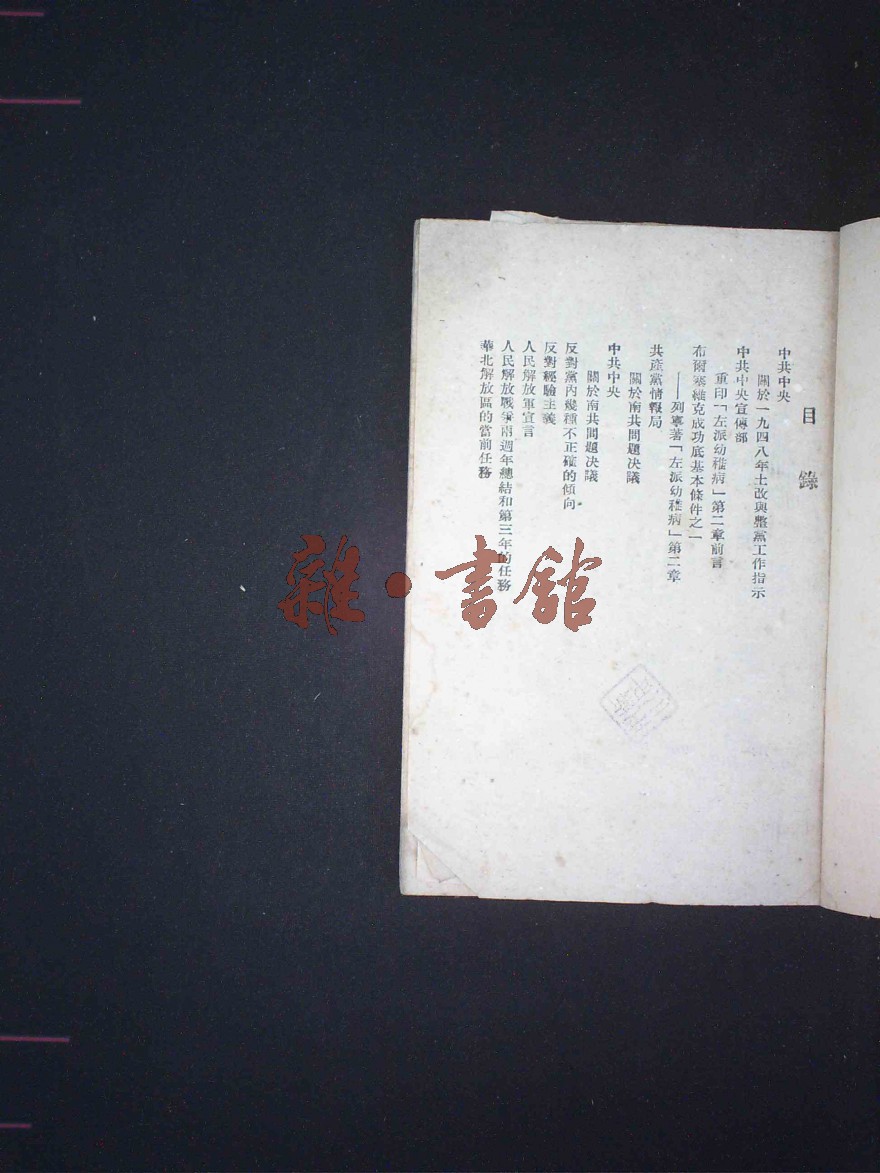 目錄
中共中央
關於一九四八年土改與整黨工作指示
中共中央宣傳部
重印「左派幼稚病」第二章前言
布爾塞維克成功底基本條件之一
——列寧著「左派幼稚病」第二章
共產黨情報局
關於南共問題決議
中共中央
關於南共問題決議
反對黨內幾種不正確的傾向
反對經驗主義
人民解放軍宣言
人民解放戰爭兩週年總結和第三年的任務
華北解放區的當前任務
雜·書館